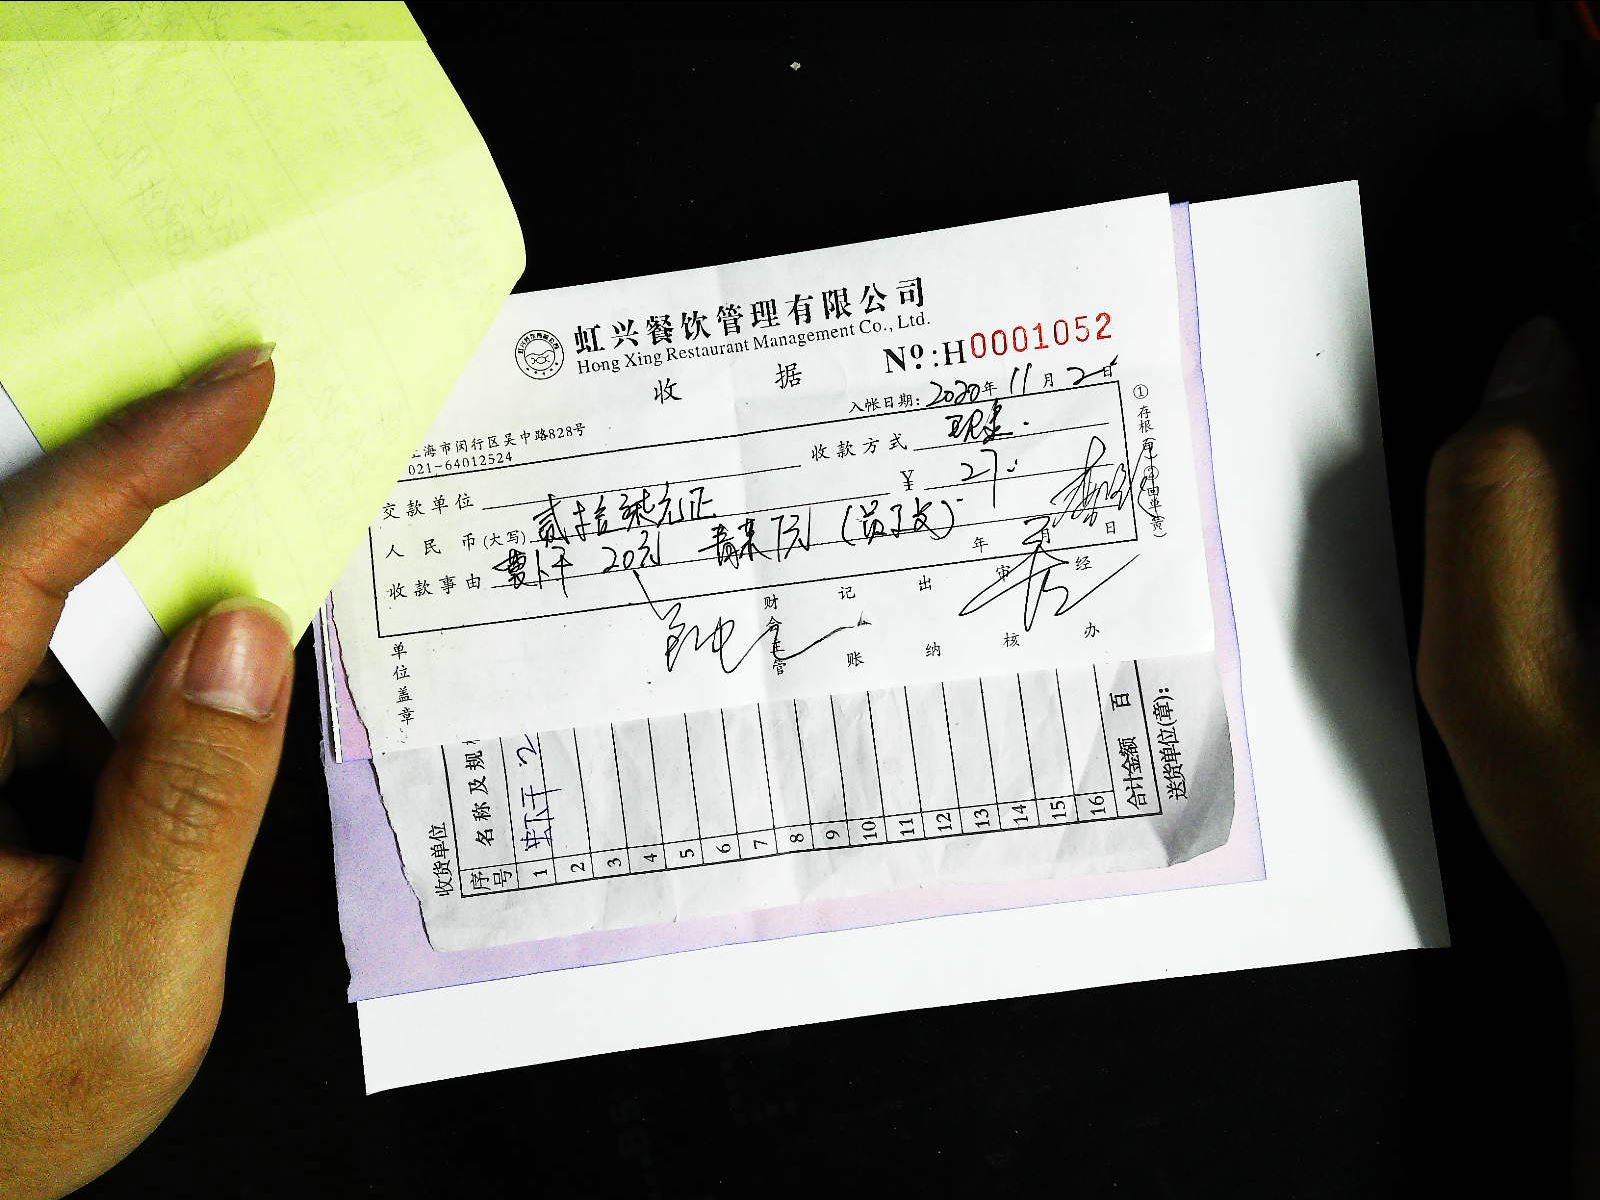 虹兴餐饮管理有限公司
Hong Xing Restaurant Management Co., Ltd.
收 据
Nº:H0001052
入帐日期: 2020年 11月 2日
上海市闵行区吴中路828号
021-64012524
交款单位
收款方式 现金
人民币(大写) 贰拾柒元正
¥ 27
收款事由 萝卜干 20元 青菜 7元 (员工支)
年 月 日
①存根
单位盖章
财会主管
记账
出纳
审核
经办
收货单位
序号
名称及规格
1
2
3
4
5
6
7
8
9
10
11
12
13
14
15
16
合计金额 百
送货单位(章):